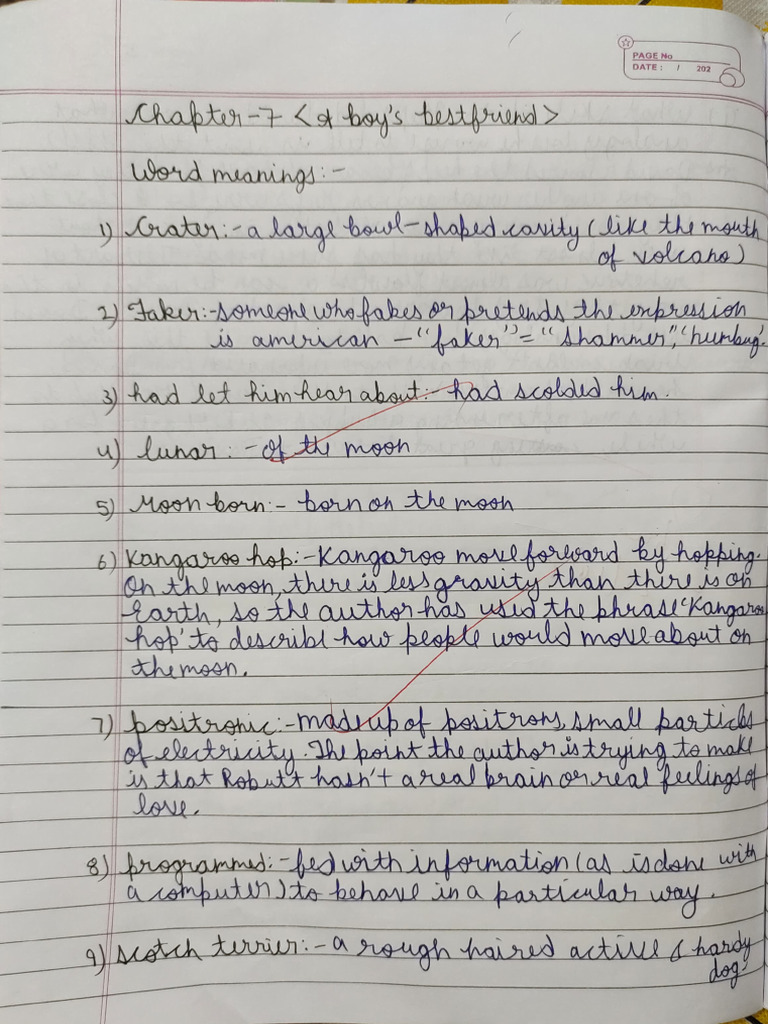 PAGE No
DATE : / 202
Chapter-7 <A boy's bestfriend>
Word meanings:-
1) Crater:- a large bowl-shaped cavity (like the mouth
of volcano)
2) Faker:-someone who fakes or pretends the expression
is american - "faker" = "shammer", 'humbug'.
3) had let him hear about:- had scolded him.
4) lunar:- of the moon
5) Moon born:- born on the moon
6) Kangaroo hop:- Kangaroo move forward by hopping.
On the moon, there is less gravity than there is on
Earth, so the author has used the phrase 'Kangaroo
hop' to describe how people would move about on
the moon.
7) positronic:- made up of positrons, small particls
of electricity. The point the author is trying to make
is that Robutt hasn't a real brain or real feelings of
love.
8) programmed:- fed with information (as is done with
a computer) to behave in a particular way.
9) scotch terrier:- a rough haired active & hardy
dog.